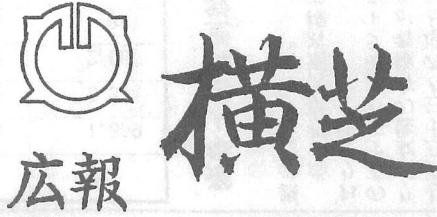 広報
横芝